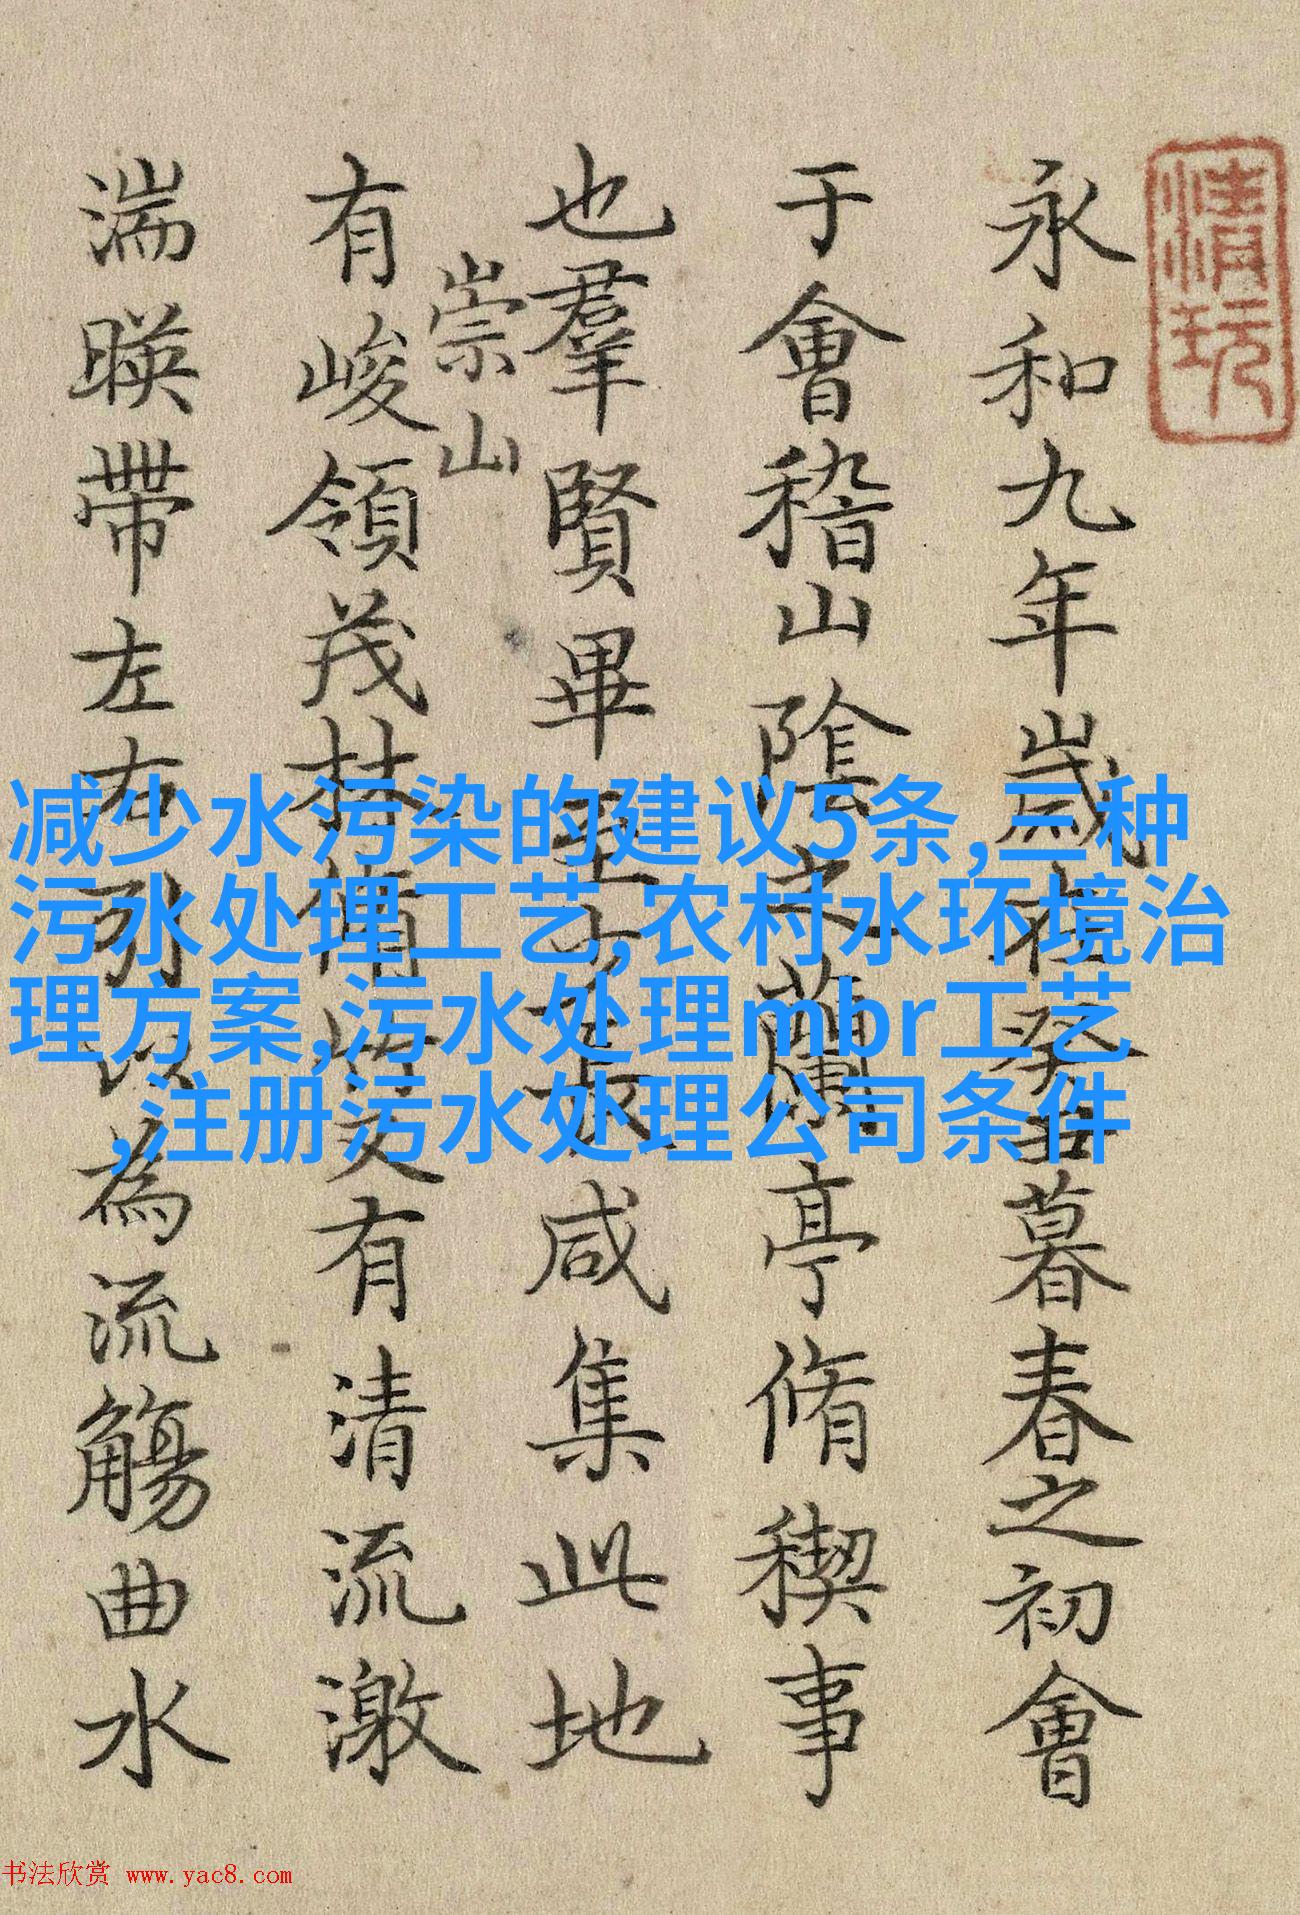 清玩
永和九年歲在癸丑暮春之初會
于會稽山陰之蘭亭脩稧事
也羣賢畢至少長咸集此地
崇山
有峻領茂林脩竹又有清流激
湍暎帶左右引以為流觴曲水
减少水污染的建议5条,三种
污水处理工艺,农村水环境治
理方案,污水处理mbr工艺
,注册污水处理公司条件
书法欣赏 www.yac8.com